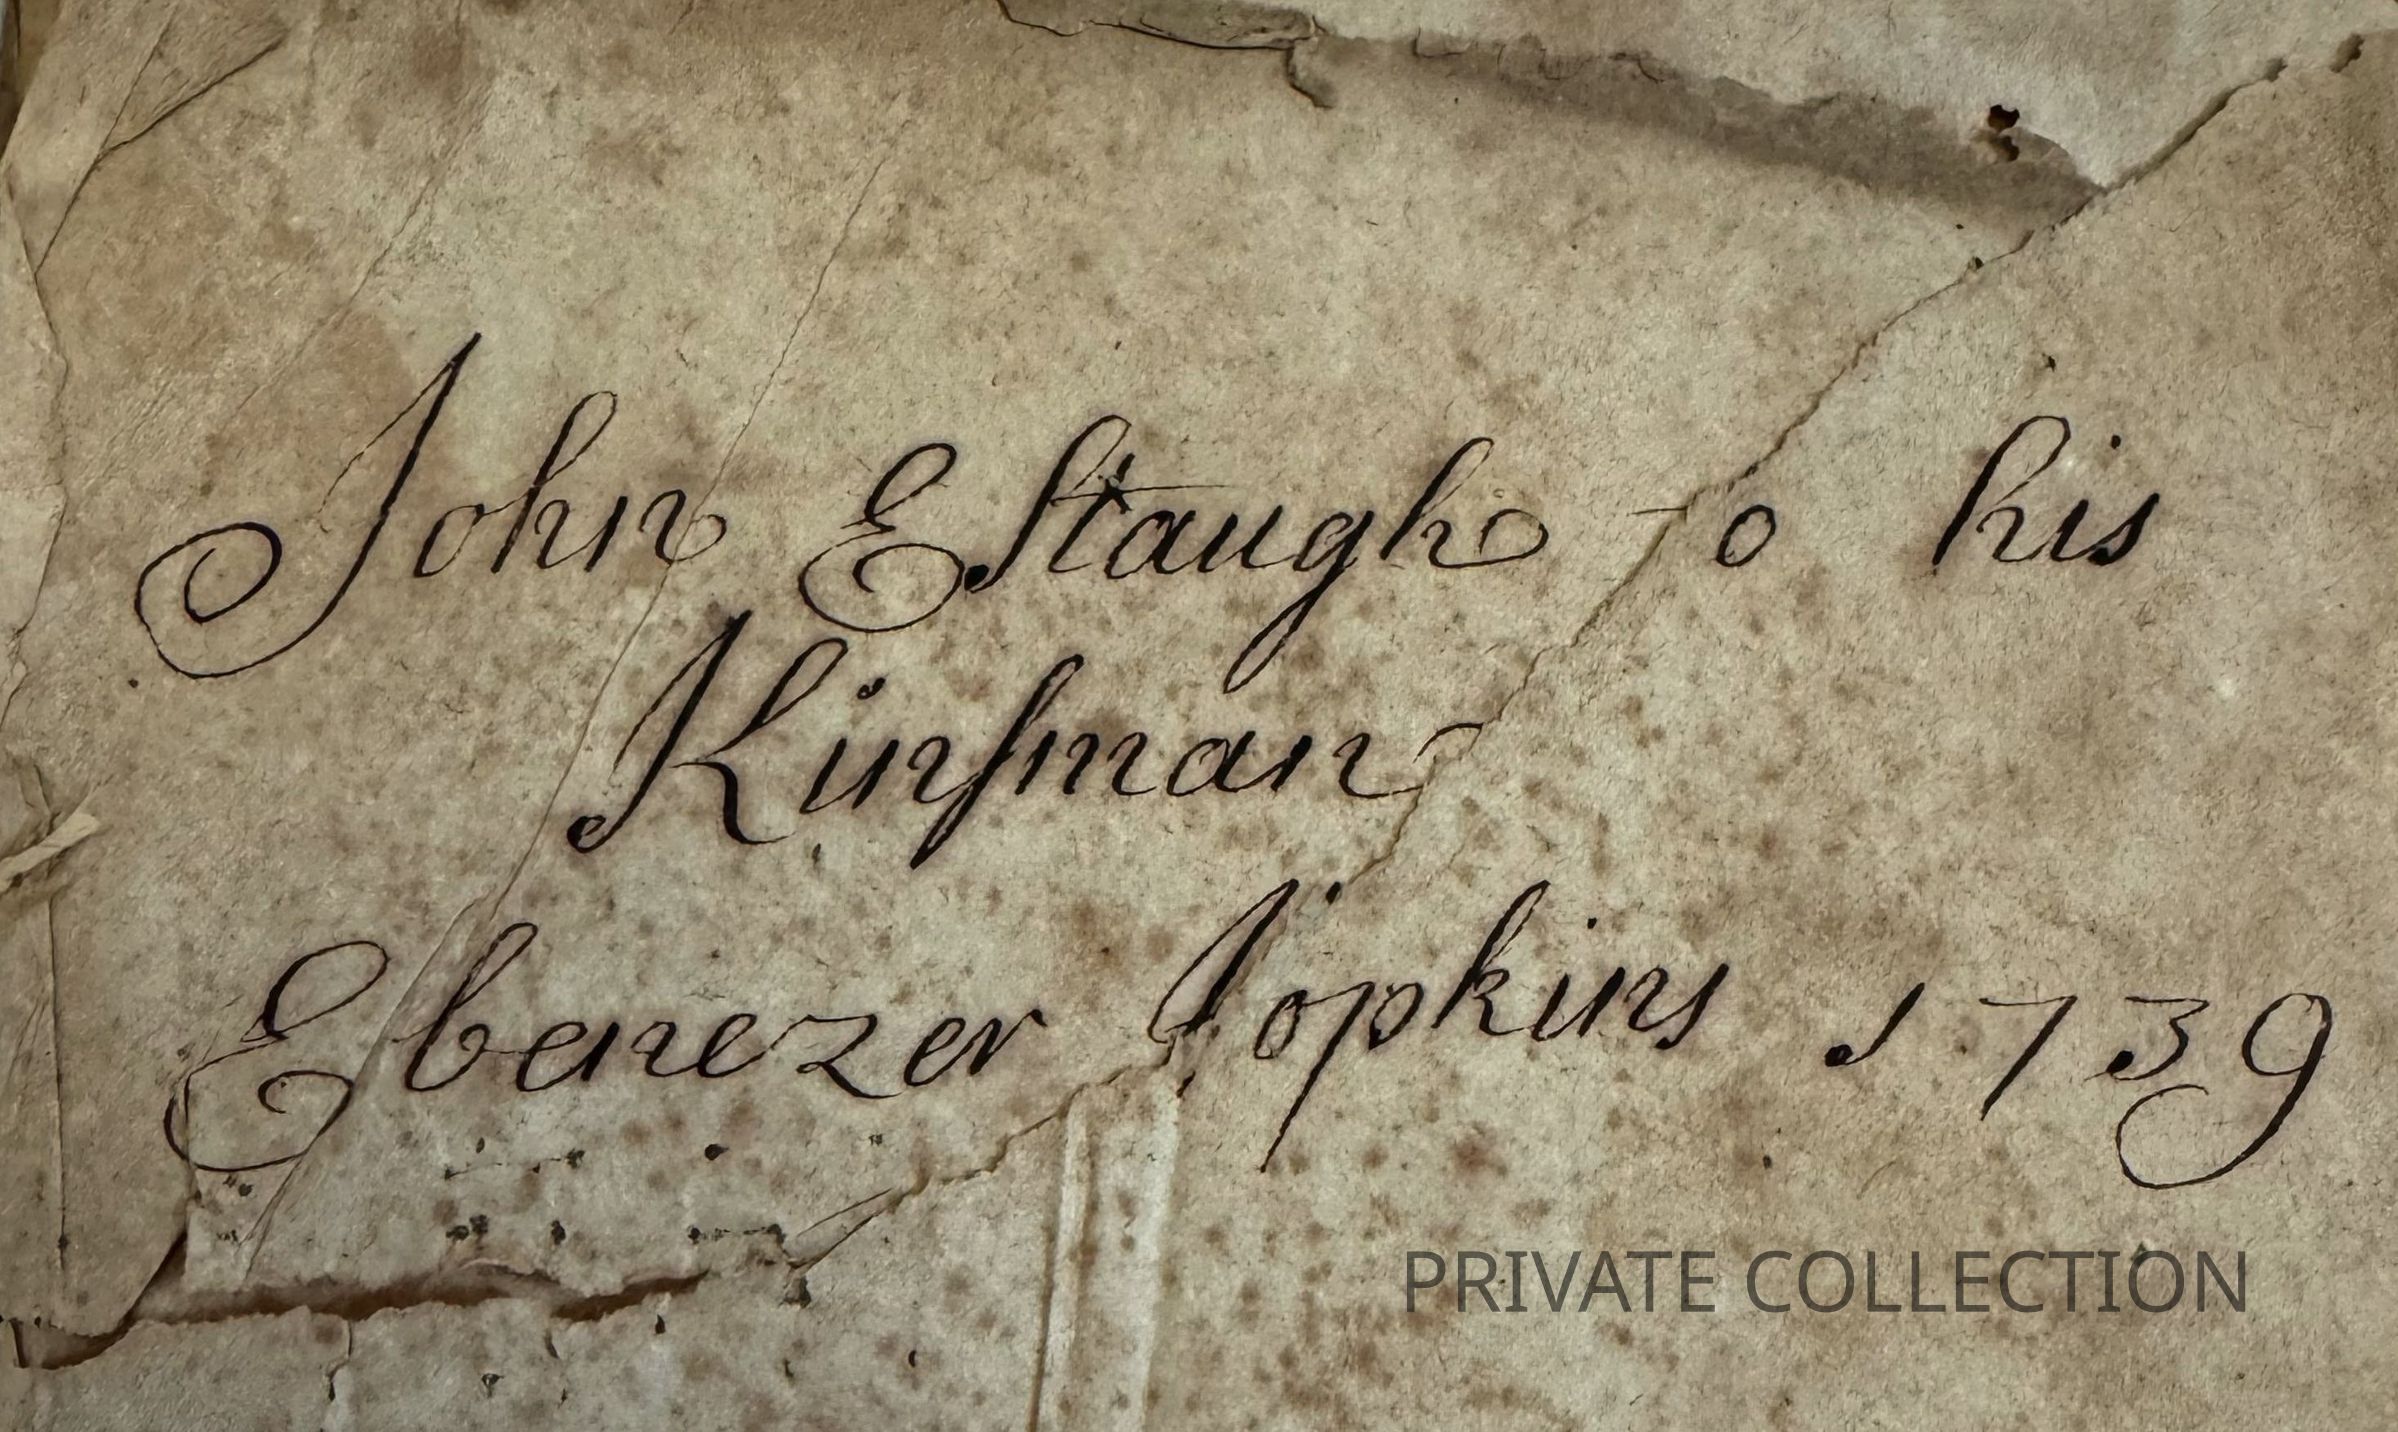 John EStaugh to his
Kinſman
Ebenezer Hopkins 1739
PRIVATE COLLECTION